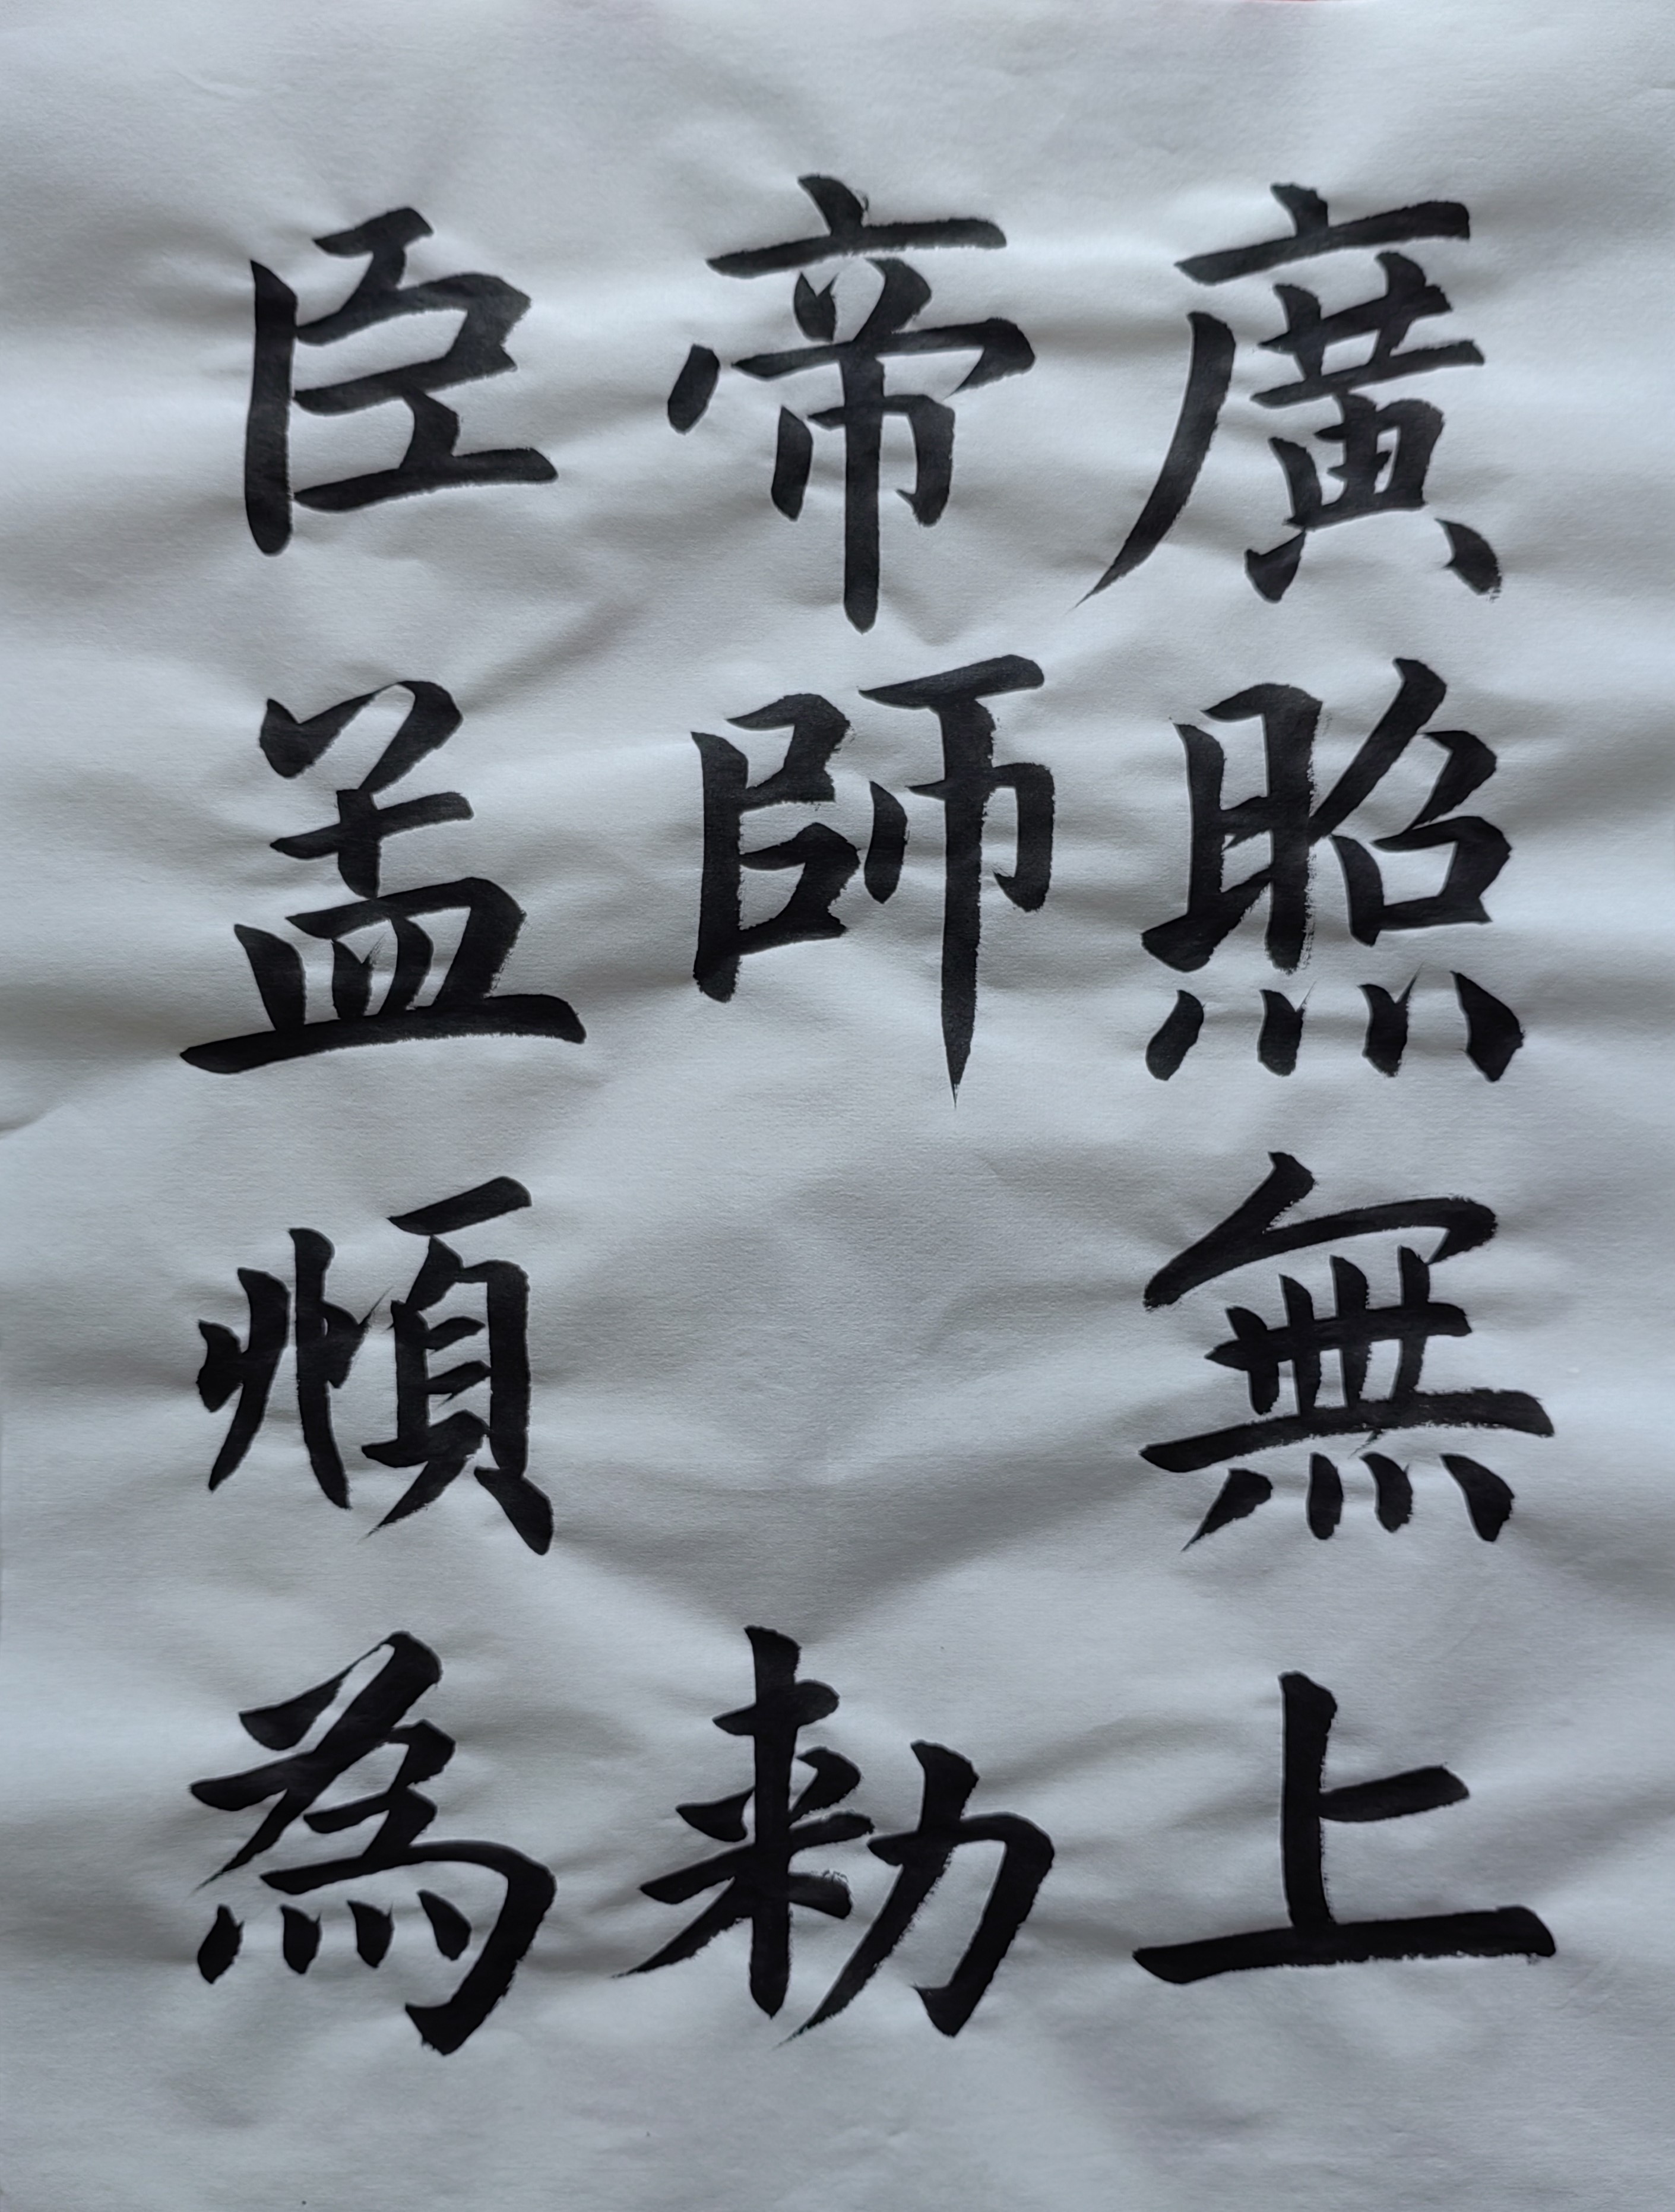 廣照無上
帝師　　勑
臣孟頫為